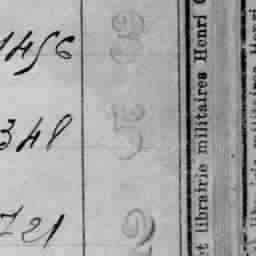 1456 3
348 5
721 2
et librairie militaires Henri